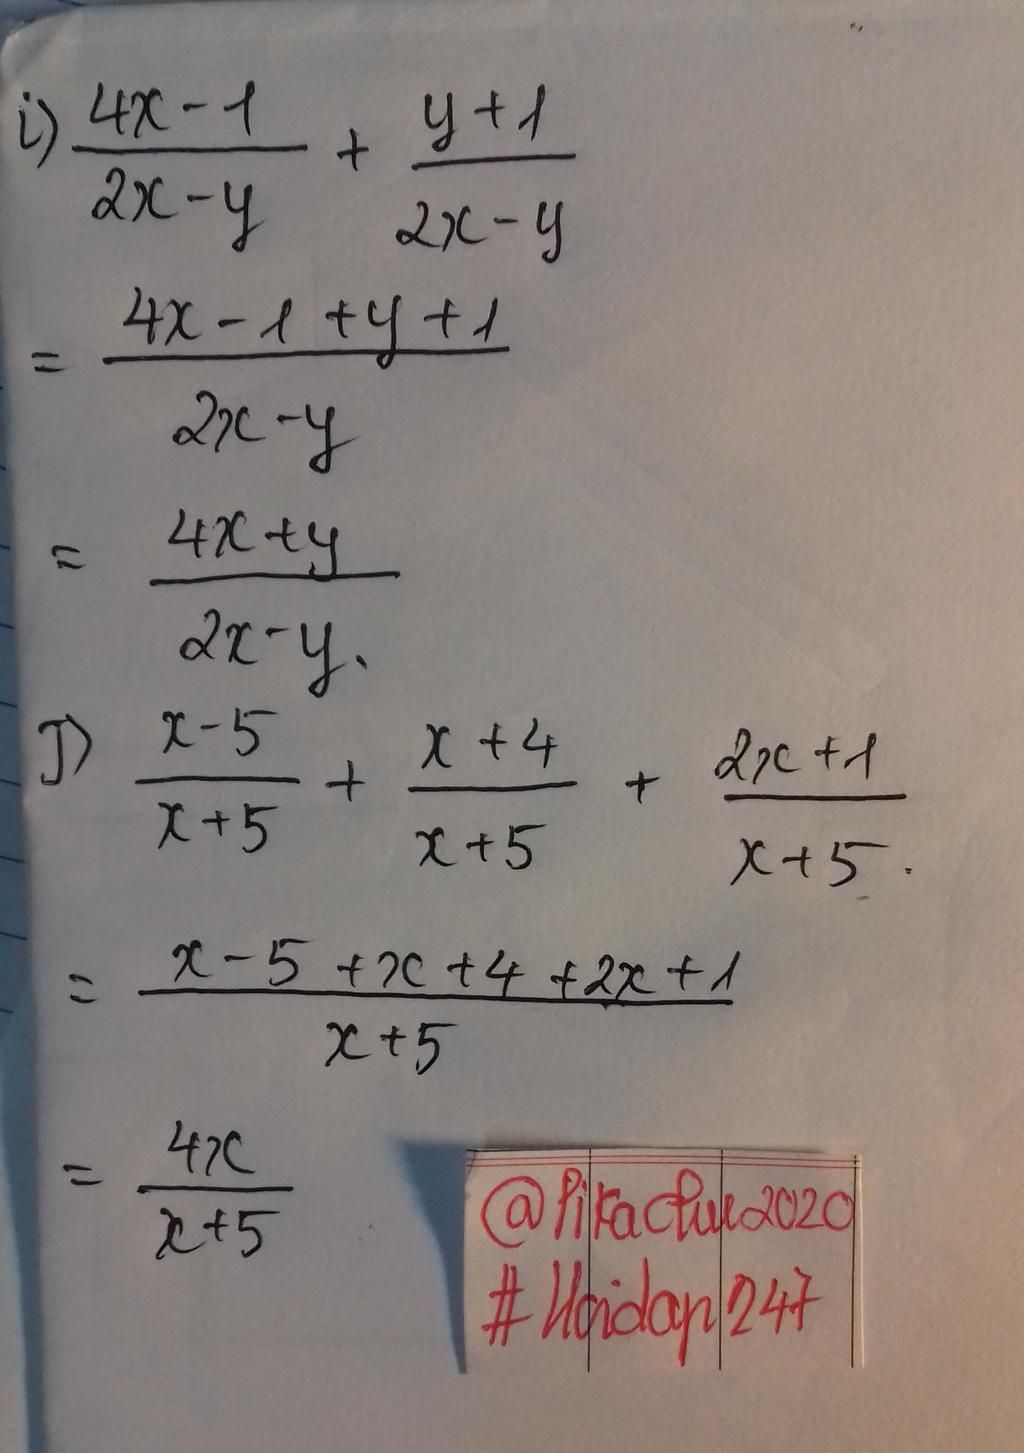 i) \frac{4x-1}{2x-y} + \frac{y+1}{2x-y}
= \frac{4x-1+y+1}{2x-y}
= \frac{4x+y}{2x-y}.
J) \frac{x-5}{x+5} + \frac{x+4}{x+5} + \frac{2x+1}{x+5}.
= \frac{x-5+x+4+2x+1}{x+5}
= \frac{4x}{x+5}
@Pikachu2020
#Hoidap247